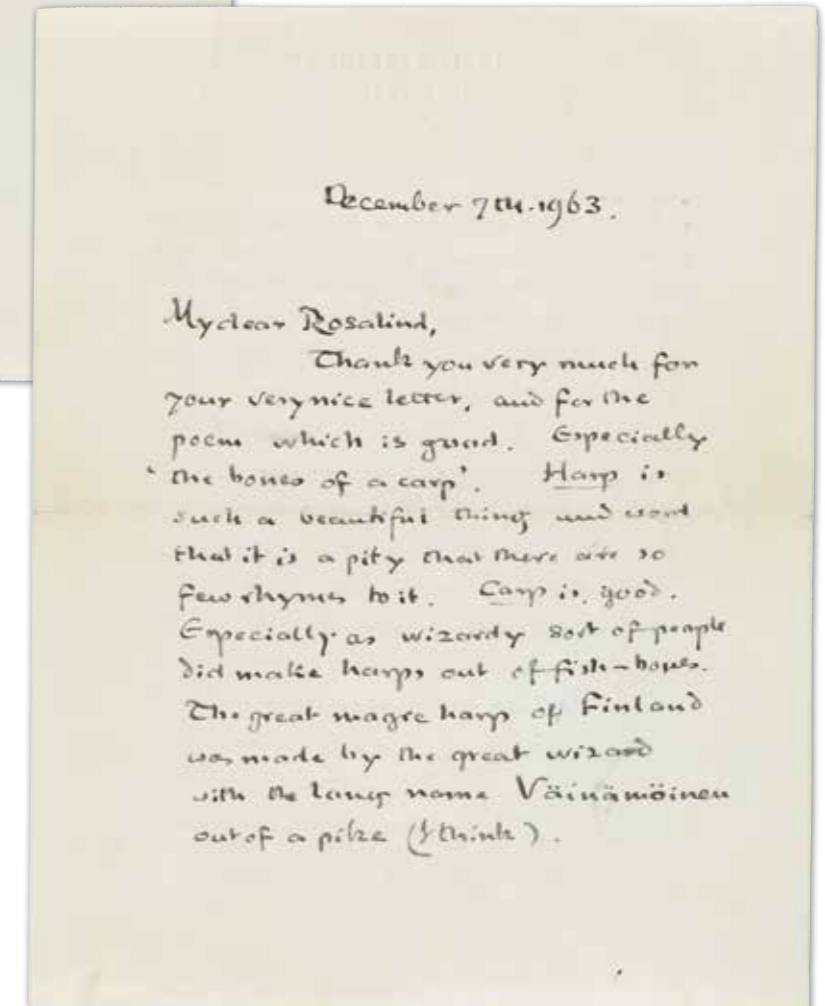 December 7th. 1963.
My dear Rosalind,
Thank you very much for
your very nice letter, and for the
poem which is good. Especially
'the bones of a carp'. Harp is
such a beautiful thing and word
that it is a pity that there are so
few rhymes to it. Carp is good.
Especially as wizardy sort of people
did make harps out of fish-bones.
The great magic harp of Finland
was made by the great wizard
with the long name Väinämöinen
out of a pike (I think).